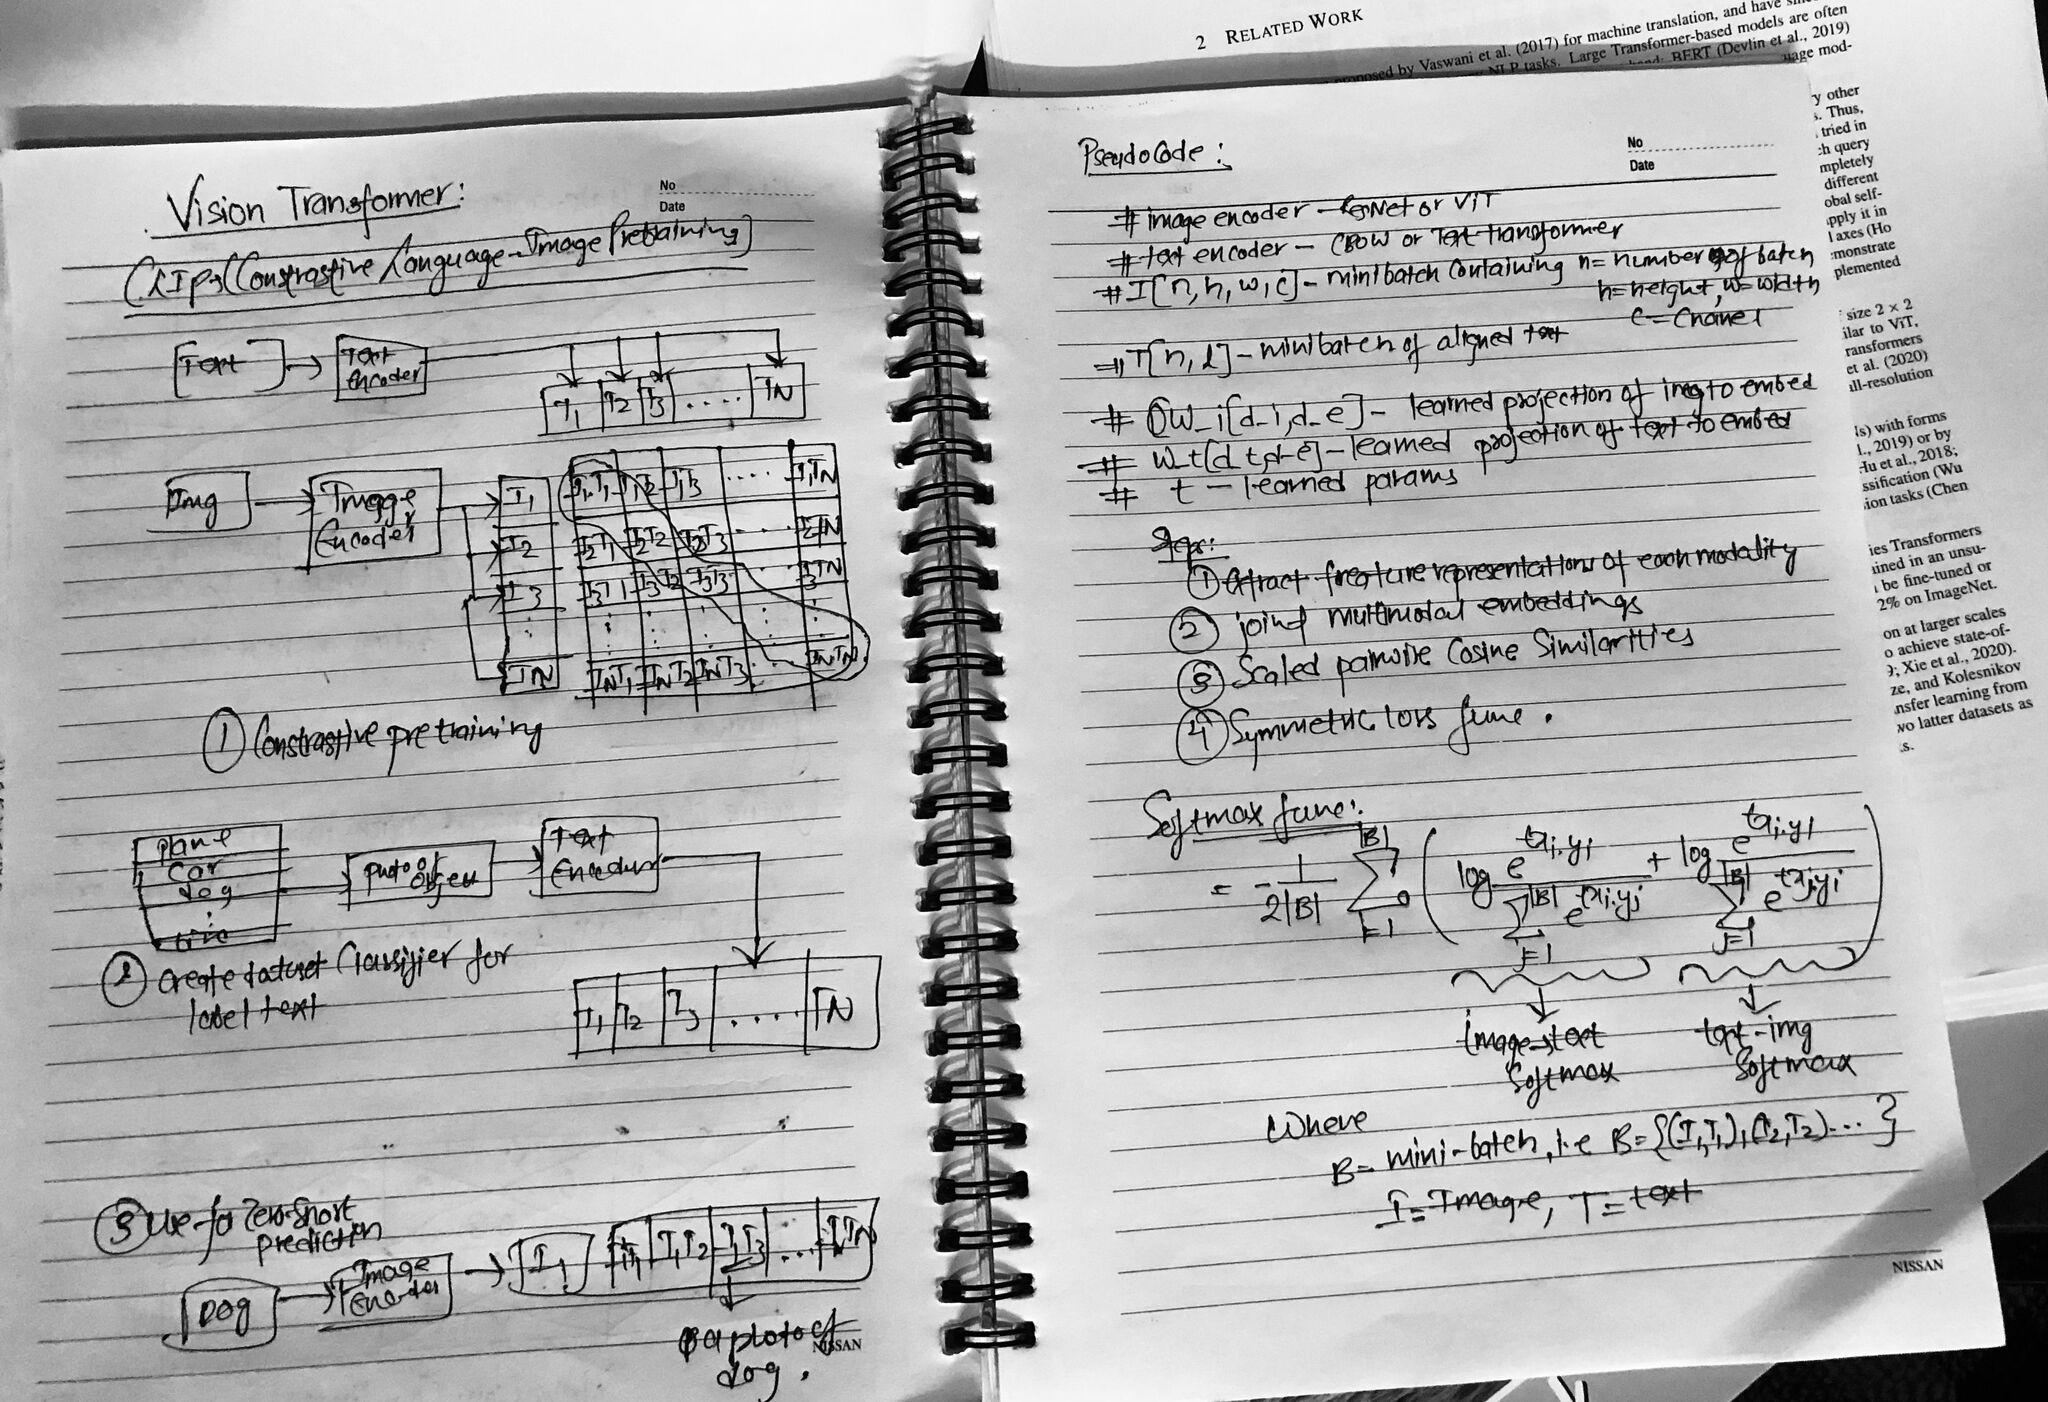 Vision Transformer:
No
Date
CLIP:(Constrastive Language-Image Pretraining)
Text
Text
Encoder
T1 T2 T3 .... TN
Img
Image
Encoder
I1 I1T1 I1T2 I1T3 .... I1TN
I2 I2T1 I2T2 I2T3 ... I2TN
I3 I3T1 I3T2 I3T3 I3TN
IN INT1 INT2 INT3 .. INTN
① Constrastive pretraining
plane
car
dog
photo of
object
Text
Encoder
② Create dataset Classifier for
label text
T1 T2 T3 .... TN
③ Use for Zero-Short
prediction
Dog
Image
Encoder
I1
I1T1 I1T2 I1T3 ... I1TN
a photo of
dog.
NISSAN
PseudoCode:
No
Date
# image encoder - ResNet or ViT
# text encoder - CBOW or Text transformer
# I[n,h,w,c] - minibatch containing n= number of batch
h=height, w=width
c=chanel
# T[n,l] - minibatch of aligned text
# W_i[d_i,d_e] - learned projection of img to embed
# w_t[d_t,d_e] - learned projection of text to embed
# t - learned params
① extract freature representations of each modality
② joinf multimodal embeddings
③ Scaled pairwise Cosine Similarities
④ Symmetric loss func.
Softmax func:
= -1/2|B| ∑ i=1 |B| ( log e^txi.yi / ∑ j=1 |B| e^txi.yj + log e^txi.yi / ∑ j=1 |B| e^txj.yi )
image→text
Softmax
text-img
Softmax
Where
B= mini-batch, i.e B={(I1,T1),(I2,T2)...}
I=Image, T=text
NISSAN
2 RELATED WORK
proposed by Vaswani et al. (2017) for machine translation, and have
NLP tasks. Large Transformer-based models are often
BERT (Devlin et al., 2019)
uage mod-
y other
s. Thus,
tried in
ch query
mpletely
different
obal self-
pply it in
l axes (Ho
monstrate
plemented
size 2 × 2
ilar to ViT,
ransformers
et al. (2020)
ull-resolution
Ns) with forms
l., 2019) or by
Hu et al., 2018;
ssification (Wu
ion tasks (Chen
ies Transformers
ained in an unsu-
be fine-tuned or
2% on ImageNet.
on at larger scales
o achieve state-of-
9; Xie et al., 2020).
ze, and Kolesnikov
nsfer learning from
wo latter datasets as
s.